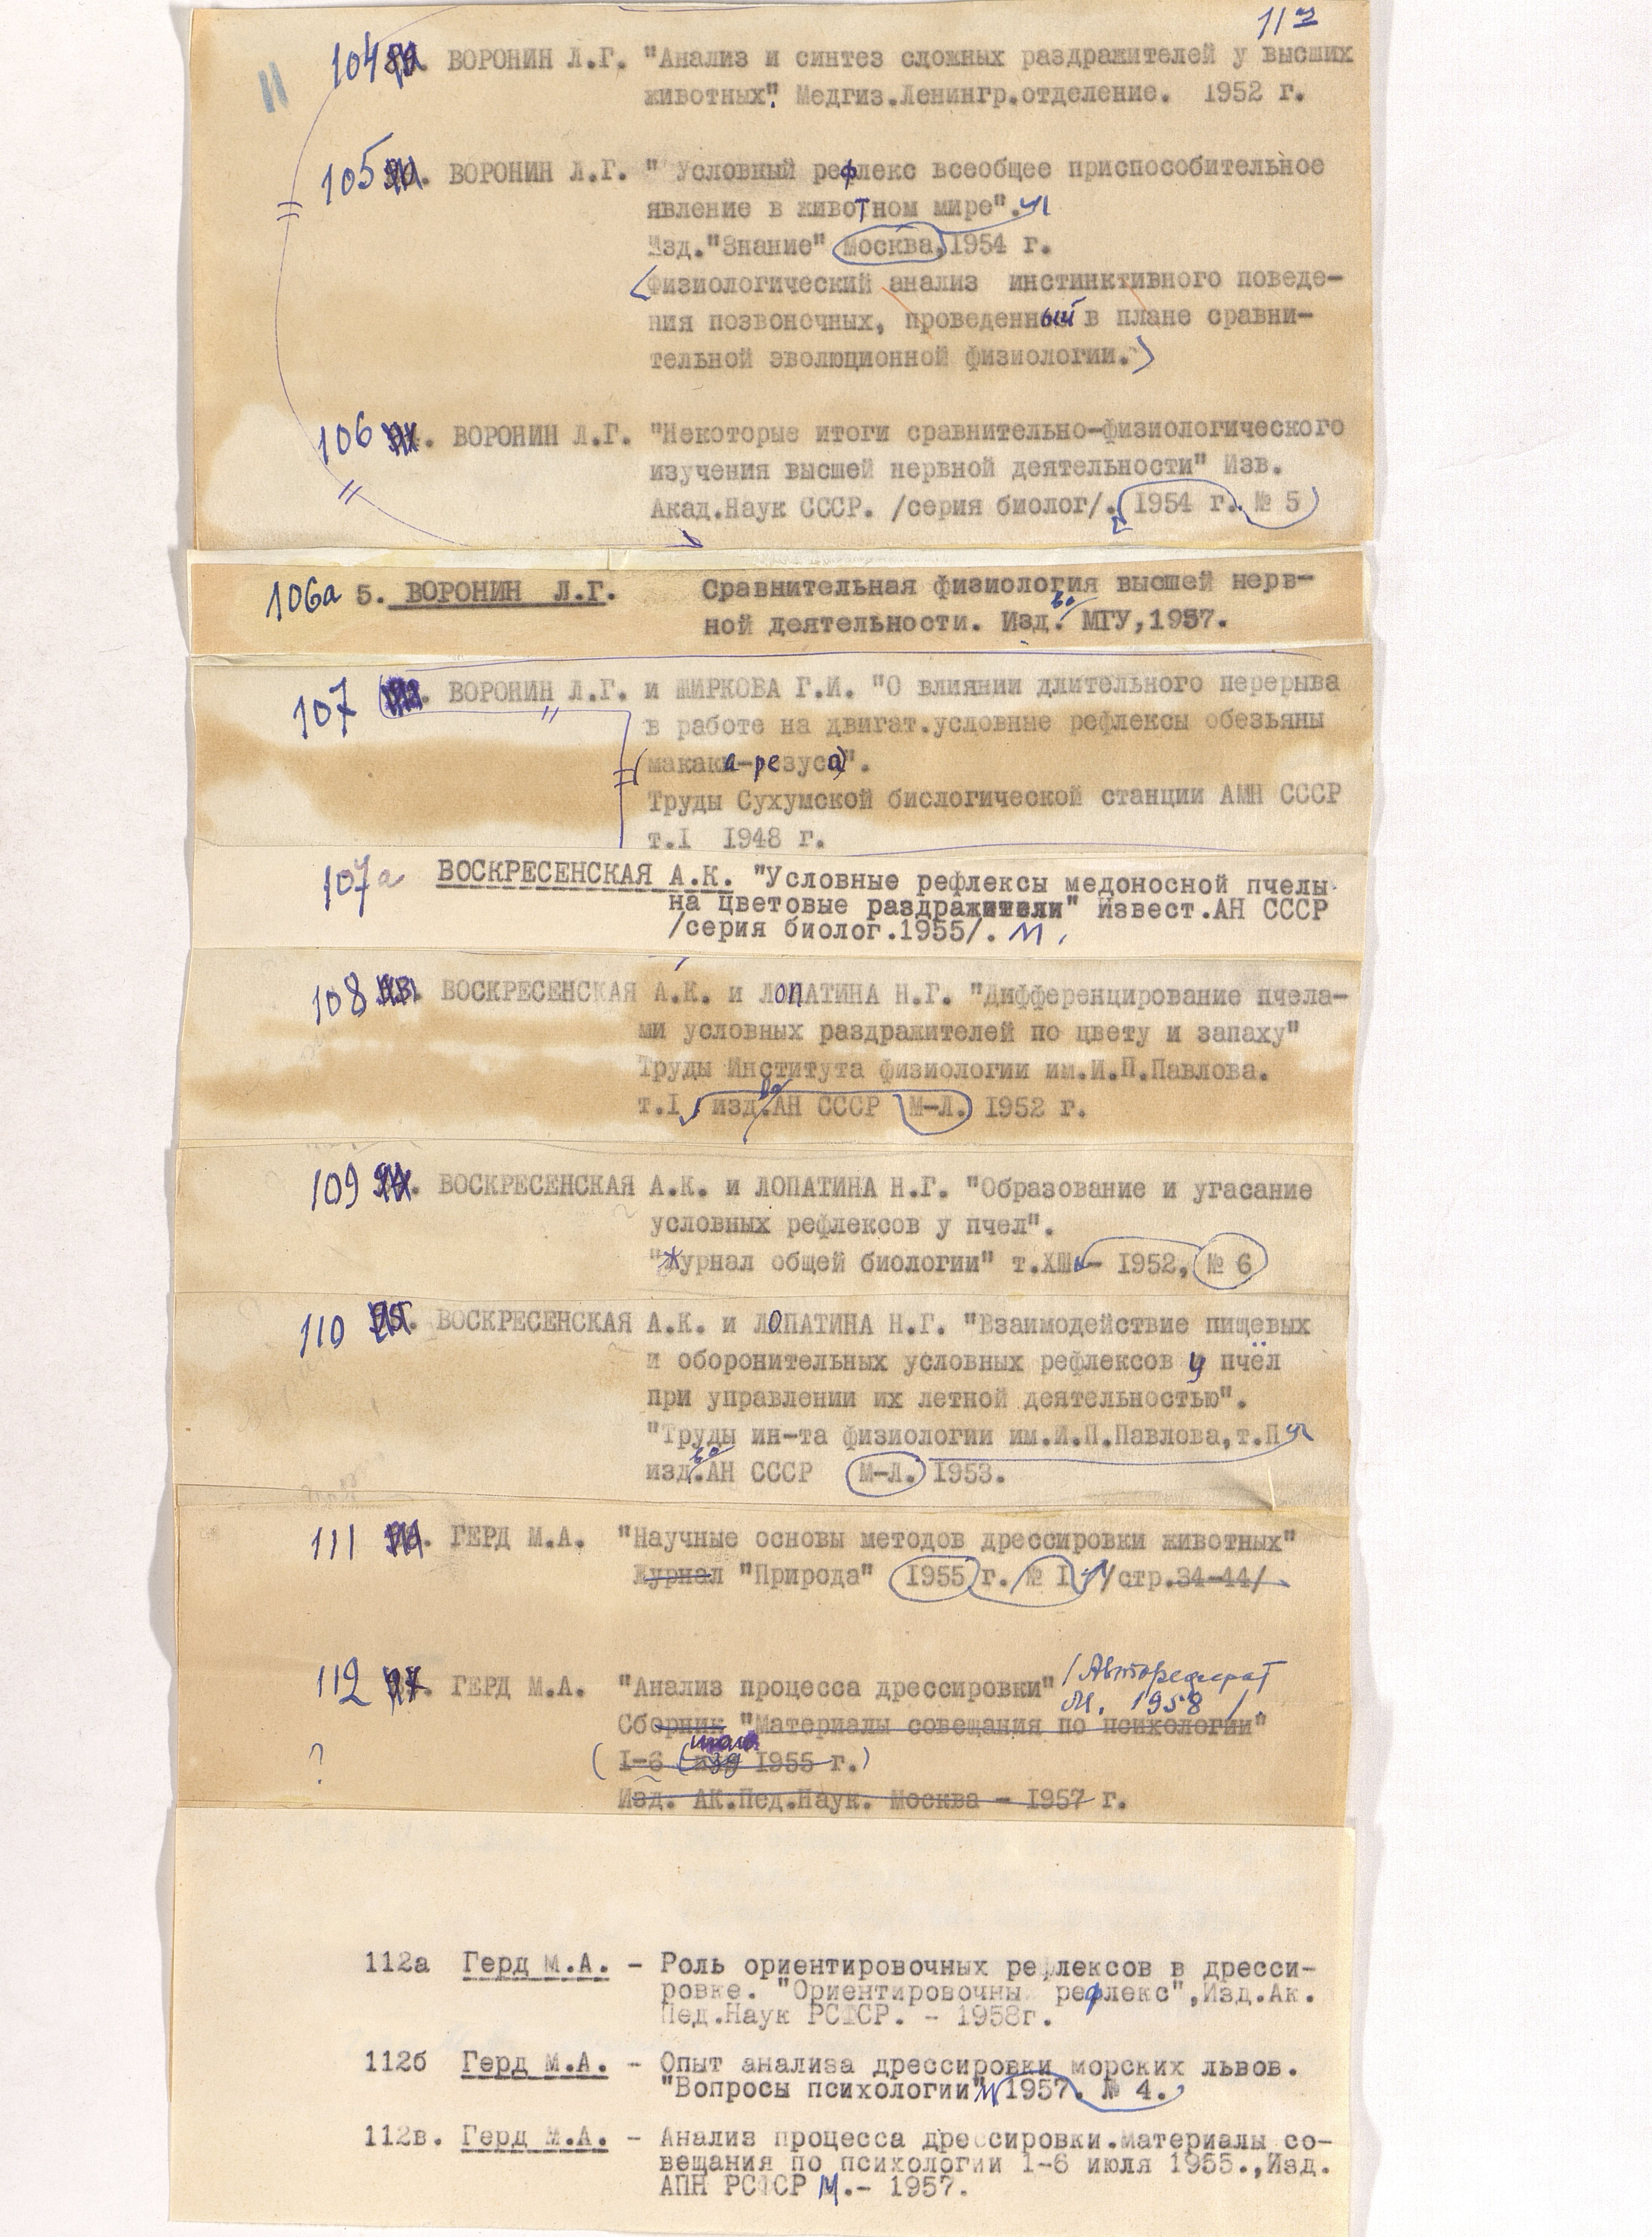 11
104. ВОРОНИН Л.Г. "Анализ и синтез сложных раздражителей у высших
животных". Медгиз.Ленингр.отделение. 1952 г.
105. ВОРОНИН Л.Г. " Условный рефлекс всеобщее приспособительное
явление в животном мире".
Изд."Знание" Москва, 1954 г.
Физиологический анализ инстинктивного поведе-
ния позвоночных, проведенный в плане сравни-
тельной эволюционной физиологии.)
106. ВОРОНИН Л.Г. "Некоторые итоги сравнительно-физиологического
изучения высшей нервной деятельности" Изв.
Акад.Наук СССР. /серия биолог/. 1954 г. № 5
106а 5. ВОРОНИН Л.Г. Сравнительная физиология высшей нерв-
ной деятельности. Изд.во МГУ,1957.
107. ВОРОНИН Л.Г. и ШИРКОВА Г.И. "О влиянии длительного перерыва
в работе на двигат.условные рефлексы обезьяны
(макака-резуса)".
Труды Сухумской биологической станции АМН СССР
т.I 1948 г.
107а ВОСКРЕСЕНСКАЯ А.К. "Условные рефлексы медоносной пчелы
на цветовые раздражители" Извест.АН СССР
/серия биолог.1955/. М.
108. ВОСКРЕСЕНСКАЯ А.К. и ЛОПАТИНА Н.Г. "Дифференцирование пчела-
ми условных раздражителей по цвету и запаху"
Труды Института физиологии им.И.П.Павлова.
т.I изд.во АН СССР М-Л. 1952 г.
109. ВОСКРЕСЕНСКАЯ А.К. и ЛОПАТИНА Н.Г. "Образование и угасание
условных рефлексов у пчел".
"Журнал общей биологии" т.ХШ - 1952, № 6
110. ВОСКРЕСЕНСКАЯ А.К. и ЛОПАТИНА Н.Г. "Взаимодействие пищевых
и оборонительных условных рефлексов у пчёл
при управлении их летной деятельностью".
"Труды ин-та физиологии им.И.П.Павлова,т.П
изд.во АН СССР М-Л. 1953.
111. ГЕРД М.А. "Научные основы методов дрессировки животных"
Журнал "Природа" 1955 г. № I /стр.34-44/
112. ГЕРД М.А. "Анализ процесса дрессировки" /Автореферат
М. 1958 /.
Сборник "Материалы совещания по психологии"
(I-6 1955 г.)
?
Изд. АК.Пед.Наук. Москва - 1957 г.
112а Герд М.А. - Роль ориентировочных рефлексов в дресси-
ровке. "Ориентировочны рефлекс",Изд.Ак.
Пед.Наук РСФСР. - 1958г.
112б Герд М.А. - Опыт анализа дрессировки морских львов.
"Вопросы психологии" 1957. № 4.
112в. Герд М.А. - Анализ процесса дрессировки.Материалы со-
вещания по психологии 1-6 июля 1955.,Изд.
АПН РСФСР М.- 1957.